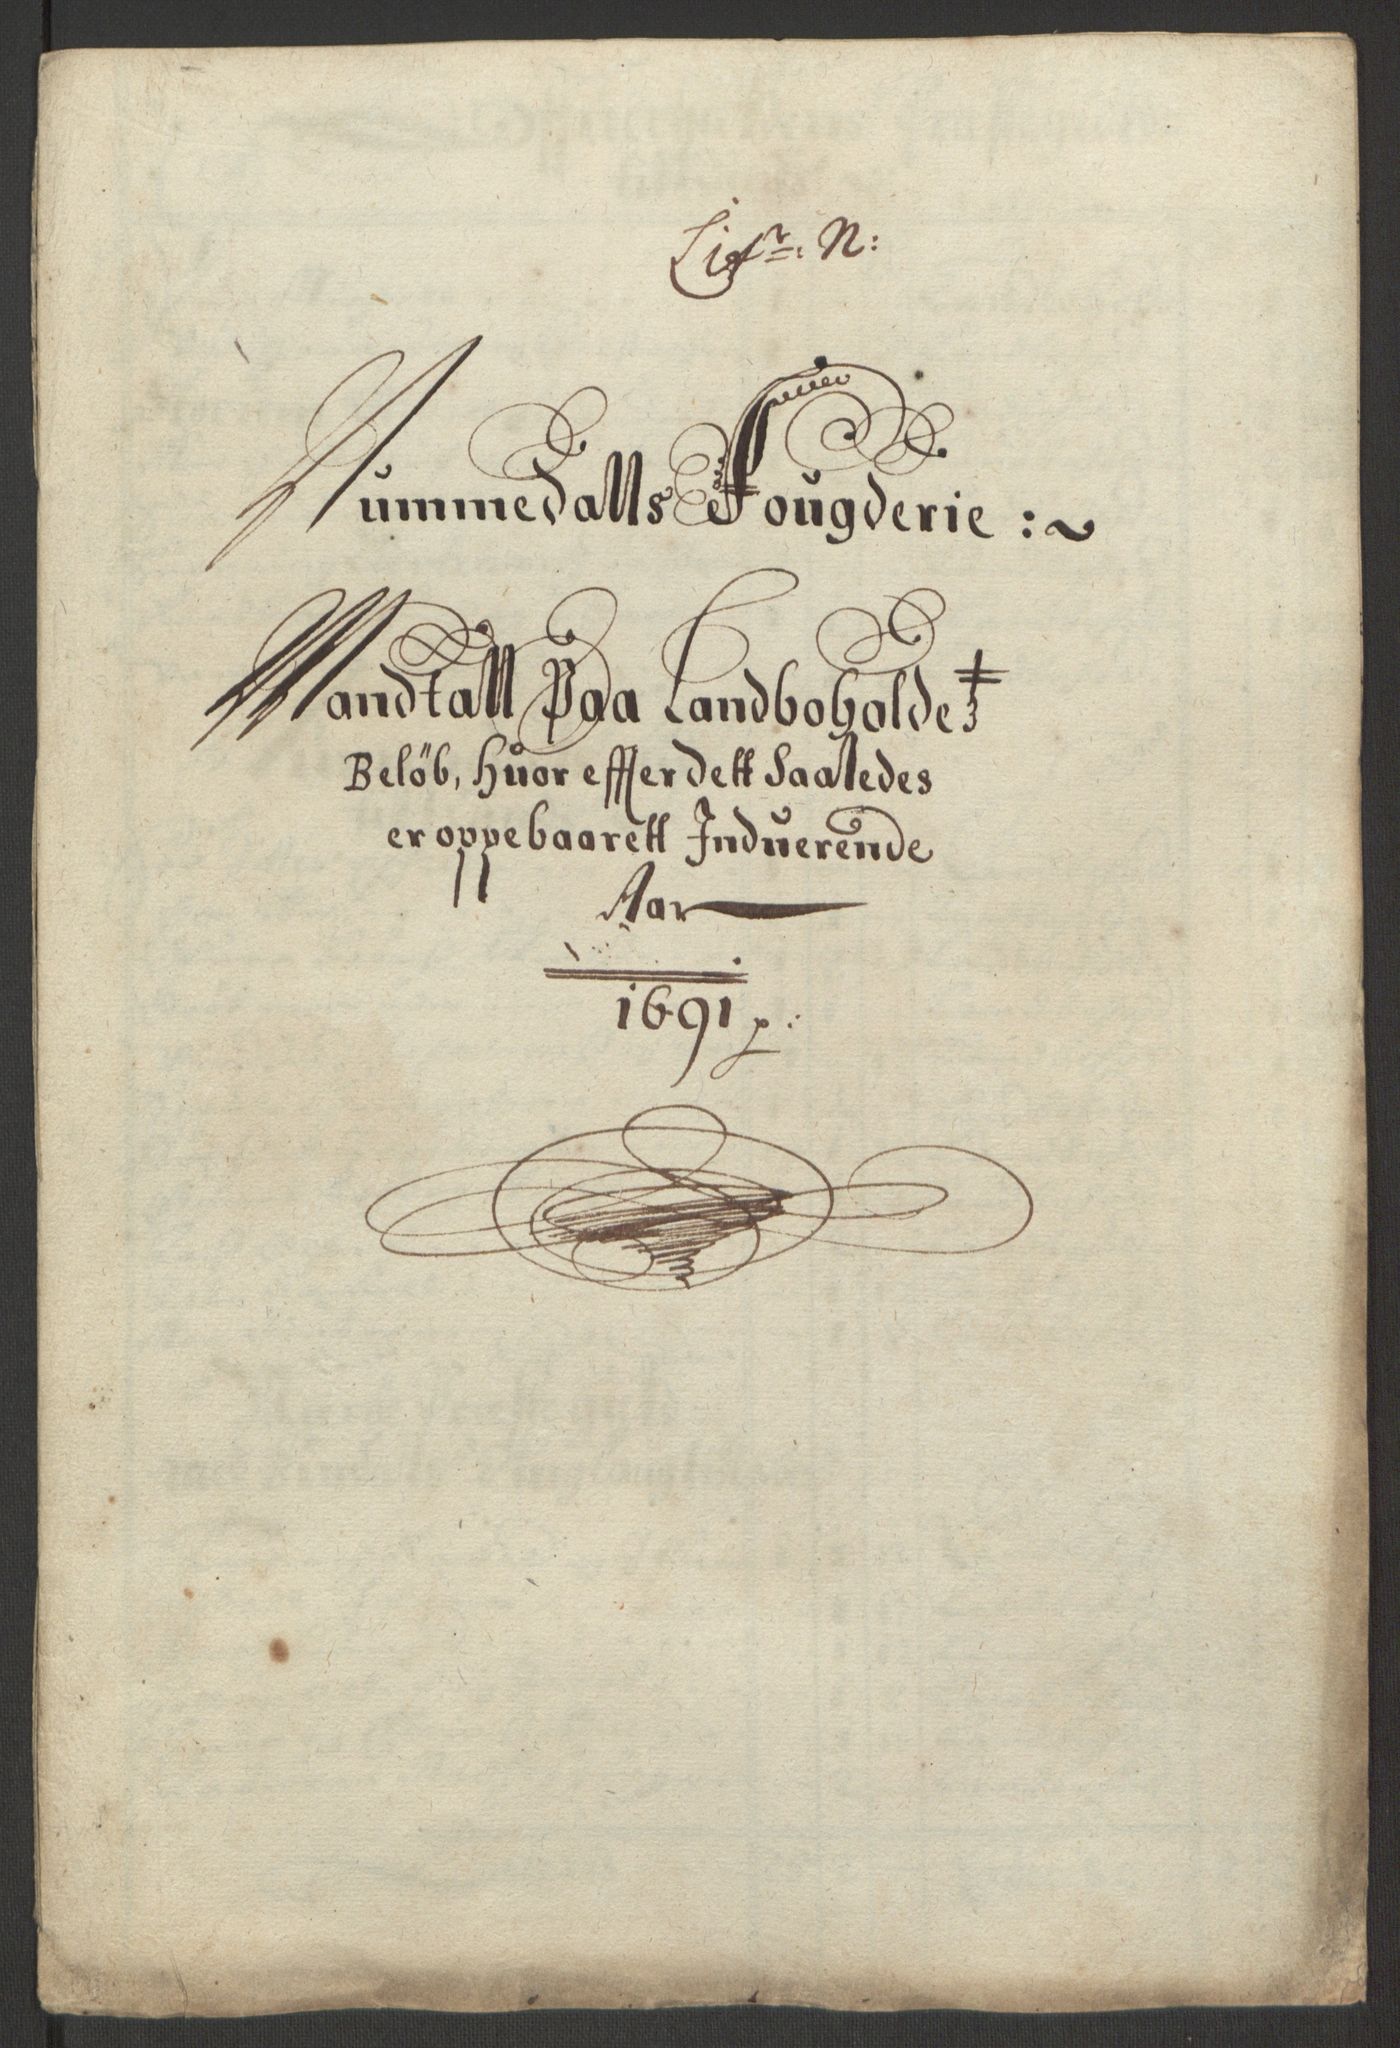 Litr: N:
Nummedalls Fougderie :~
Mandtall Paa Landboholdetz
Belöb, Huor effter dett Saaledes
er oppebaarett Induerende
Aar
1691